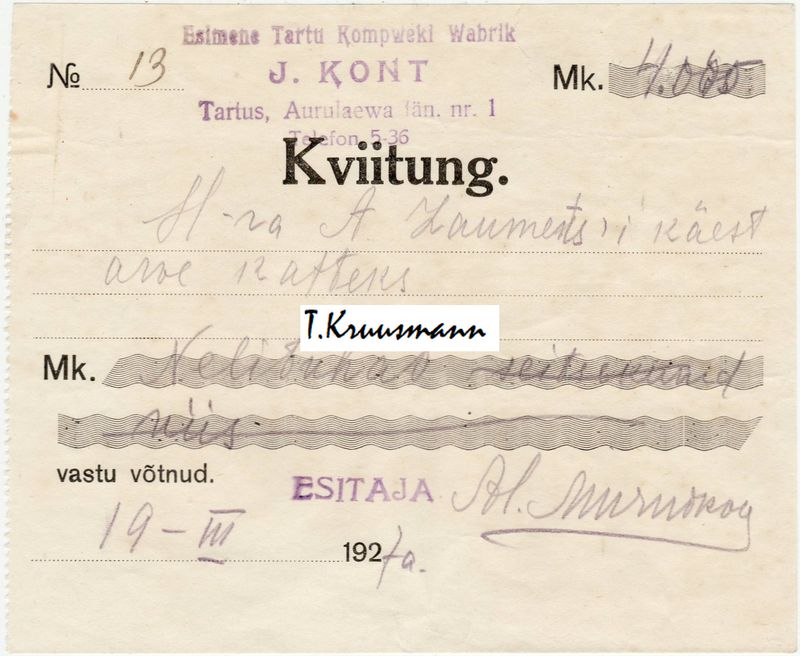 Esimene Tartu Kompweki Wabrik
№ 13
J. KONT
Mk. 4.065
Tartus, Aurulaewa tän. nr. 1
Telefon 5-36
Kviitung.
H-ra A Zauments'i käest
arve katteks
T.Kruusmann
Mk. Nelituhat
viis
vastu võtnud.
ESITAJA Al.
19-III 1927a.